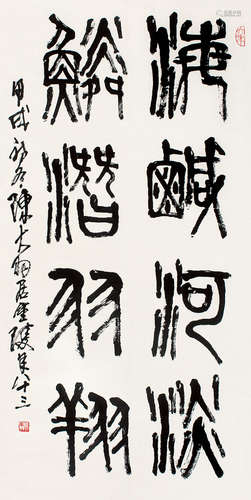 海鹹河淡
鱗潛羽翔
甲戌初冬陳大羽居金陵年八十三